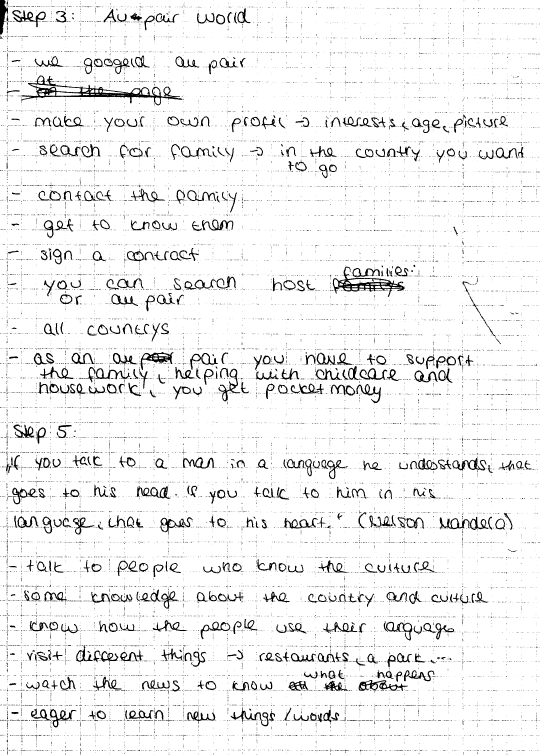 Step 3: Au-pair world
- we googeld au pair
at
- on the page
- make your own profil → interests, age, picture
- search for family → in the country you want
to go
- contact the family
- get to know them
- sign a contract
families:
- you can search host familys
or au pair
- all countrys
- as an au pair you have to support
the family, helping with childcare and
housework, you get pocket money
Step 5:
„If you talk to a man in a language he understands, that
goes to his head. If you talk to him in his
language, that goes to his heart." (Nelson Mandela)
- talk to people who know the culture
- some knowledge about the country and culture
- know how the people use their language
- visit different things → restaurants, a park ...
what happens
- watch the news to know the about
- eager to learn new things / words